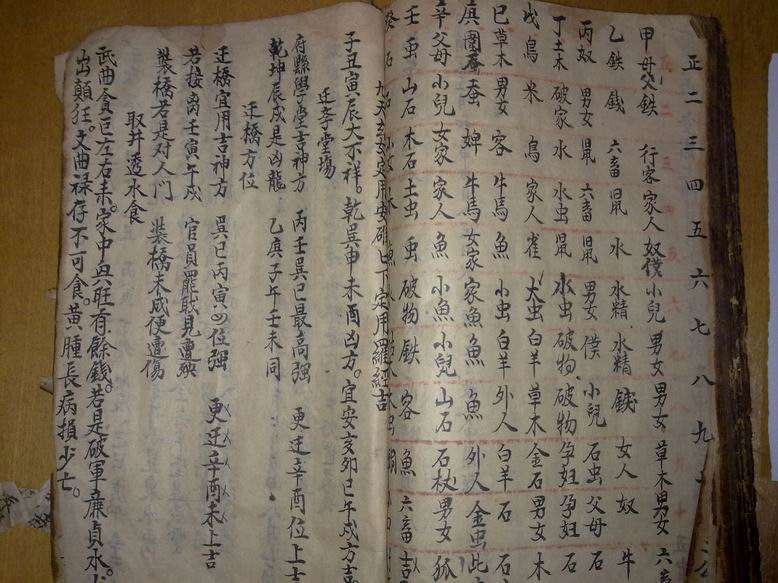 正 二 三 四 五 六 七 八 九
甲 母父 鉄 行客 家人 奴僕 小兒 男女 男女 草木 男女 六畜
乙 鉄 錢 六畜 鼠 水 水精 水精 鉄 女人 奴 牛
丙 奴 男女 鼠 六畜 鼠 男女 僕 小兒 石虫 父母 石
丁 土木 破家 水 水虫 鼠 水虫 破物 破物 孕妇 孕妇 石
戊 鳥 米 鳥 家人 雀 犬虫 白羊 草木 金石 男女 木
巳 草木 男女 客 牛馬 魚 小虫 白羊 外人 白羊 石 石
蚕 婢 牛馬 女家 家魚 魚 魚 外人 金虫 此
辛 父母 小兒 女家 家人 魚 小魚 小兒 山石 石杖 男女 狐
壬 虫 山石 木石 土虫 虫 破物 鉄 客 魚 六畜 吉
子丑寅辰大不祥。乾巽申未酉凶方。宜安亥卯巳午戌方吉。
迁李堂場
府縣學堂吉神方 丙壬巽巳最高强 更迁辛酉位上吉
乾坤辰戌是凶龍 乙庚子午壬未同
迁橋方位
迁橋宜用吉神方 巽巳丙寅四位强 更迁辛酉未上吉
若接凶壬寅午戌 官員罷戝見遭殃
裝橋若是对人门 裝橋未成便遭傷
取井透水食
武曲貪巨左右来。家中興旺有餘錢。若是破軍廉貞水。
出顛狂。文曲禄存不可食。黄腫長病損少亡。